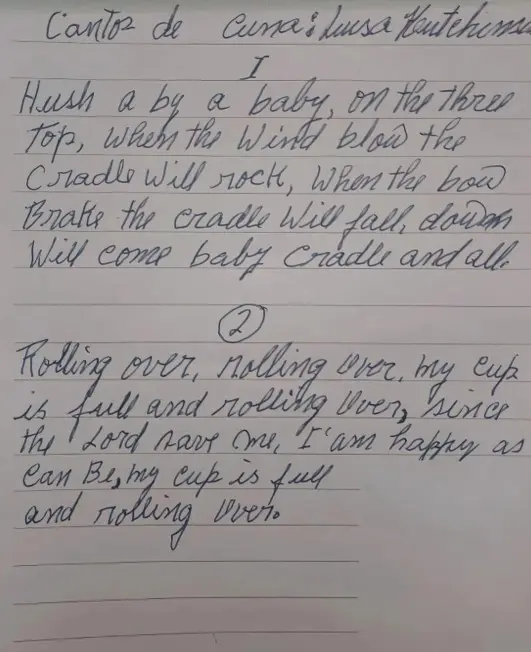 Cantos de cuna: Luisa Hutchinson
I
Hush a by a baby, on the three
Top, when the Wind blow the
Cradle Will rock, When the bow
Brake the cradle Will fall, down
Will come baby Cradle and all.
2
Rolling over, rolling over, my cup
is full and rolling Over, since
the Lord save me, I'am happy as
Can Be, my cup is full
and rolling Over.